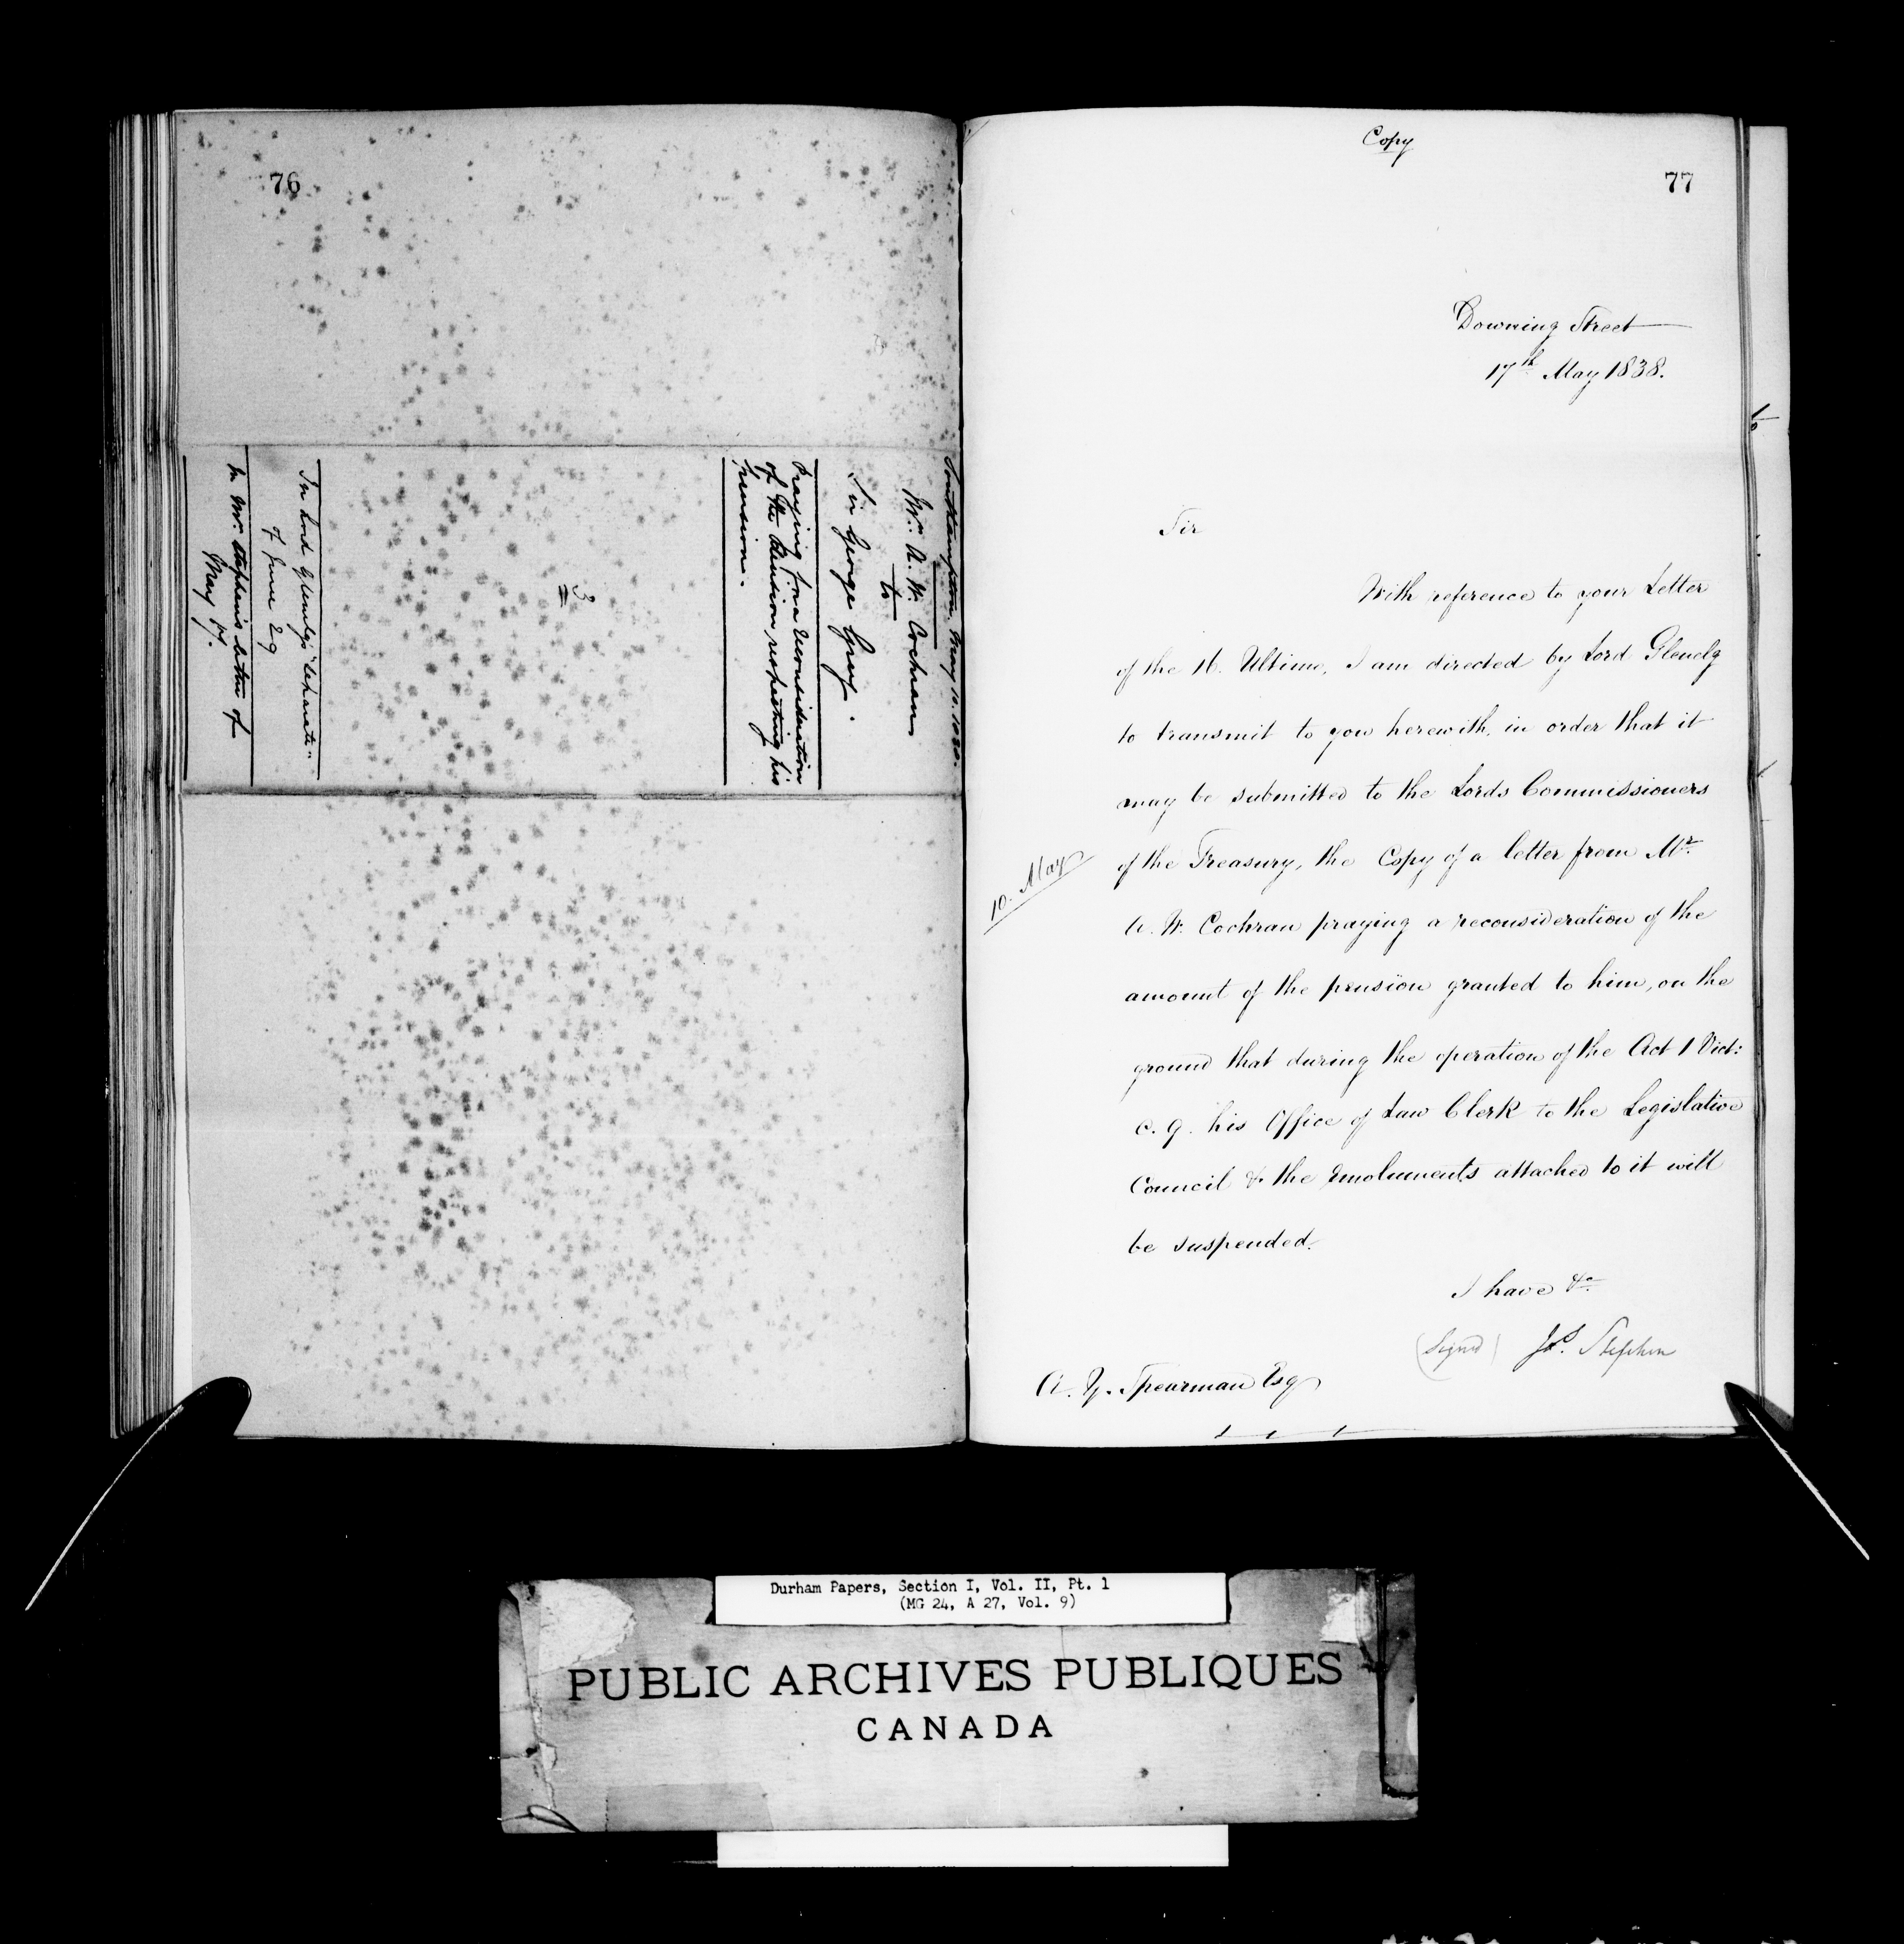 76
Southampton, May 10. 1838.
Mr. A. W. Cochran
to
Sir George Grey.
Praying for a reconsideration
of the decision respecting his
pension.
3
In Lord Glenelg's "Separate"
of June 29
In Mr. Stephen's letter of
May 17.
Copy
77
Downing Street
17th May 1838.
Sir
With reference to your Letter
of the 16. Ultimo, I am directed by Lord Glenelg
to transmit to you herewith, in order that it
may be submitted to the Lords Commissioners
of the Treasury, the Copy of a letter from Mr.
10. May
A. W. Cochran praying a reconsideration of the
amount of the pension granted to him, on the
ground that during the operation of the Act 1 Vict:
c. 9. his Office of Law Clerk to the Legislative
Council & the Emoluments attached to it will
be suspended.
I have &c.
(Signed) Jas. Stephen
A. Y. Spearman Esq
Durham Papers, Section I, Vol. II, Pt. 1
(MG 24, A 27, Vol. 9)
PUBLIC ARCHIVES PUBLIQUES
CANADA